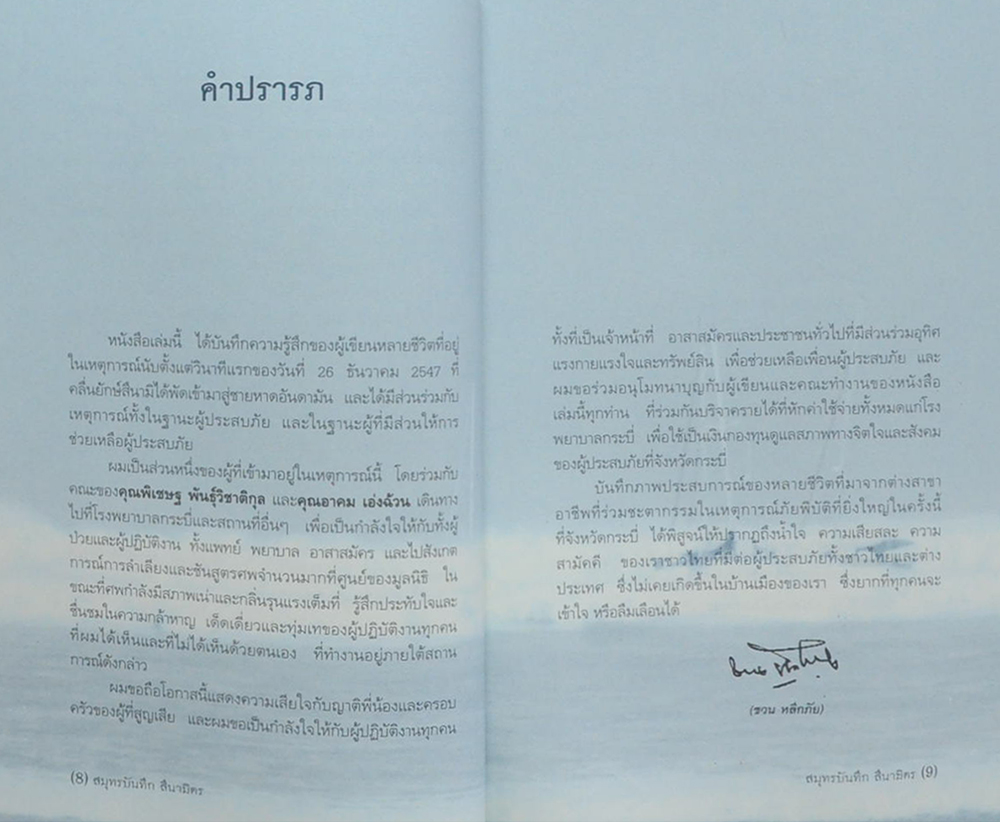 คำปรารภ
หนังสือเล่มนี้ ได้บันทึกความรู้สึกของผู้เขียนหลายชีวิตที่อยู่
ในเหตุการณ์นับตั้งแต่วินาทีแรกของวันที่ 26 ธันวาคม 2547 ที่
คลื่นยักษ์สึนามิได้พัดเข้ามาสู่ชายหาดอันดามัน และได้มีส่วนร่วมกับ
เหตุการณ์ทั้งในฐานะผู้ประสบภัย และในฐานะผู้ที่มีส่วนให้การ
ช่วยเหลือผู้ประสบภัย
ผมเป็นส่วนหนึ่งของผู้ที่เข้ามาอยู่ในเหตุการณ์นี้ โดยร่วมกับ
คณะของคุณพิเชษฐ พันธุ์วิชาติกุล และคุณอาคม เอ่งฉ้วน เดินทาง
ไปที่โรงพยาบาลกระบี่และสถานที่อื่นๆ เพื่อเป็นกำลังใจให้กับทั้งผู้
ป่วยและผู้ปฏิบัติงาน ทั้งแพทย์ พยาบาล อาสาสมัคร และไปสังเกต
การณ์การลำเลียงและชันสูตรศพจำนวนมากที่ศูนย์ของมูลนิธิ ใน
ขณะที่ศพกำลังมีสภาพเน่าและกลิ่นรุนแรงเต็มที่ รู้สึกประทับใจและ
ชื่นชมในความกล้าหาญ เด็ดเดี่ยวและทุ่มเทของผู้ปฏิบัติงานทุกคน
ที่ผมได้เห็นและที่ไม่ได้เห็นด้วยตนเอง ที่ทำงานอยู่ภายใต้สถาน
การณ์ดังกล่าว
ผมขอถือโอกาสนี้แสดงความเสียใจกับญาติพี่น้องและครอบ
ครัวของผู้ที่สูญเสีย และผมขอเป็นกำลังใจให้กับผู้ปฏิบัติงานทุกคน
(8) สมุทรบันทึก สึนามิคร
ทั้งที่เป็นเจ้าหน้าที่ อาสาสมัครและประชาชนทั่วไปที่มีส่วนร่วมอุทิศ
แรงกายแรงใจและทรัพย์สิน เพื่อช่วยเหลือเพื่อนผู้ประสบภัย และ
ผมขอร่วมอนุโมทนาบุญกับผู้เขียนและคณะทำงานของหนังสือ
เล่มนี้ทุกท่าน ที่ร่วมกันบริจาครายได้ที่หักค่าใช้จ่ายทั้งหมดแก่โรง
พยาบาลกระบี่ เพื่อใช้เป็นเงินกองทุนดูแลสภาพทางจิตใจและสังคม
ของผู้ประสบภัยที่จังหวัดกระบี่
บันทึกภาพประสบการณ์ของหลายชีวิตที่มาจากต่างสาขา
อาชีพที่ร่วมชะตากรรมในเหตุการณ์ภัยพิบัติที่ยิ่งใหญ่ในครั้งนี้
ที่จังหวัดกระบี่ ได้พิสูจน์ให้ปรากฏถึงน้ำใจ ความเสียสละ ความ
สามัคคี ของเราชาวไทยที่มีต่อผู้ประสบภัยทั้งชาวไทยและต่าง
ประเทศ ซึ่งไม่เคยเกิดขึ้นในบ้านเมืองของเรา ซึ่งยากที่ทุกคนจะ
เข้าใจ หรือลืมเลือนได้
ชวน หลีกภัย
(ชวน หลีกภัย)
สมุทรบันทึก สึนามิคร (9)